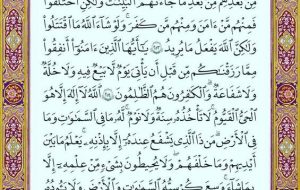 مِنۢ بَعْدِهِم مِّنۢ بَعْدِ مَا جَآءَتْهُمُ ٱلْبَيِّنَٰتُ وَلَٰكِنِ ٱخْتَلَفُوا۟
فَمِنْهُم مَّنْ ءَامَنَ وَمِنْهُم مَّن كَفَرَ وَلَوْ شَآءَ ٱللَّهُ مَا ٱقْتَتَلُوا۟
وَلَٰكِنَّ ٱللَّهَ يَفْعَلُ مَا يُرِيدُ ٢٥٣ يَٰٓأَيُّهَا ٱلَّذِينَ ءَامَنُوٓا۟ أَنفِقُوا۟
مِمَّا رَزَقْنَٰكُم مِّن قَبْلِ أَن يَأْتِىَ يَوْمٌ لَّا بَيْعٌ فِيهِ وَلَا خُلَّةٌ
وَلَا شَفَٰعَةٌ وَٱلْكَٰفِرُونَ هُمُ ٱلظَّٰلِمُونَ ٢٥٤ ٱللَّهُ لَآ إِلَٰهَ إِلَّا هُوَ
ٱلْحَىُّ ٱلْقَيُّومُ لَا تَأْخُذُهُۥ سِنَةٌ وَلَا نَوْمٌ لَّهُۥ مَا فِى ٱلسَّمَٰوَٰتِ وَمَا
فِى ٱلْأَرْضِ مَن ذَا ٱلَّذِى يَشْفَعُ عِندَهُۥٓ إِلَّا بِإِذْنِهِۦ يَعْلَمُ مَا بَيْنَ
أَيْدِيهِمْ وَمَا خَلْفَهُمْ وَلَا يُحِيطُونَ بِشَىْءٍ مِّنْ عِلْمِهِۦٓ إِلَّا
بِمَا شَآءَ وَسِعَ كُرْسِيُّهُ ٱلسَّمَٰوَٰتِ وَٱلْأَرْضَ وَلَا يَـُٔودُهُۥ